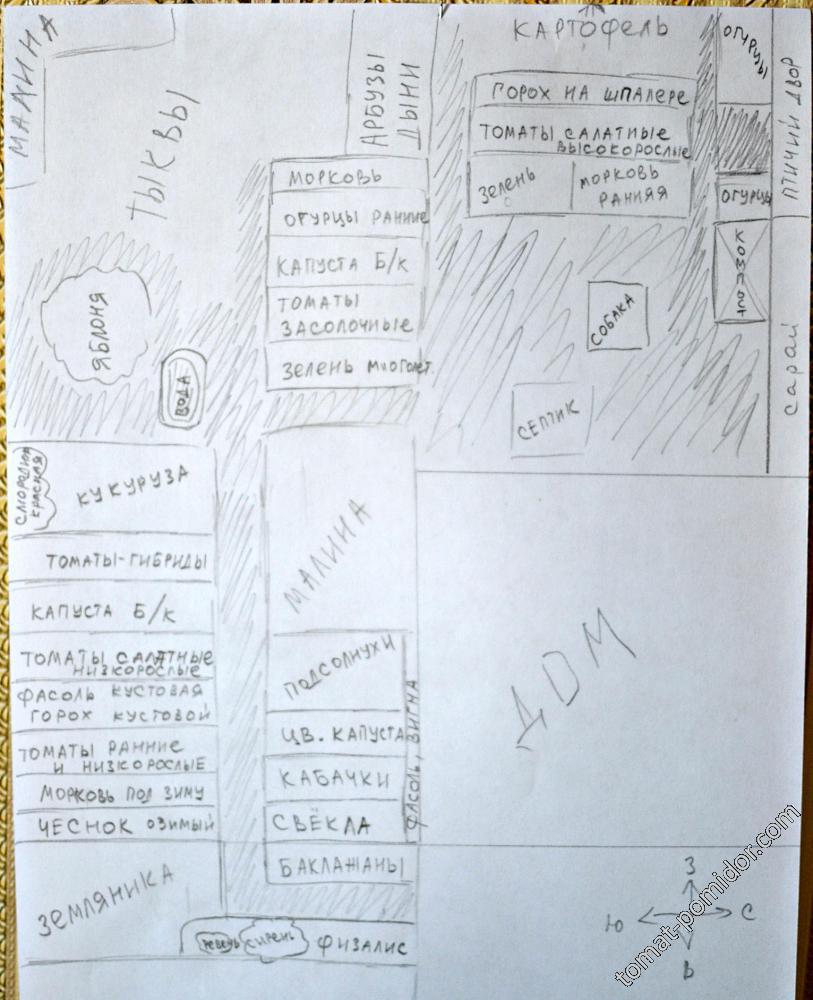 МАЛИНА
ТЫКВЫ
АРБУЗЫ
ДЫНИ
КАРТОФЕЛЬ
ОГУРЦЫ
ПТИЧИЙ ДВОР
ГОРОХ НА ШПАЛЕРЕ
ТОМАТЫ САЛАТНЫЕ
ВЫСОКОРОСЛЫЕ
ЗЕЛЕНЬ
МОРКОВЬ
РАННЯЯ
ОГУРЦЫ
КОМПОСТ
САРАЙ
МОРКОВЬ
ОГУРЦЫ РАННИЕ
КАПУСТА Б/К
ТОМАТЫ
ЗАСОЛОЧНЫЕ
ЗЕЛЕНЬ МНОГОЛЕТ.
ЯБЛОНЯ
ВОДА
СОБАКА
СЕПТИК
СМОРОДИНА
КРАСНАЯ
КУКУРУЗА
ТОМАТЫ-ГИБРИДЫ
КАПУСТА Б/К
ТОМАТЫ САЛАТНЫЕ
НИЗКОРОСЛЫЕ
ФАСОЛЬ КУСТОВАЯ
ГОРОХ КУСТОВОЙ
ТОМАТЫ РАННИЕ
И НИЗКОРОСЛЫЕ
МОРКОВЬ ПОД ЗИМУ
ЧЕСНОК ОЗИМЫЙ
ЗЕМЛЯНИКА
МАЛИНА
ПОДСОЛНУХИ
ЦВ. КАПУСТА
КАБАЧКИ
СВЁКЛА
БАКЛАЖАНЫ
ФАСОЛЬ, ВИГНА
ДОМ
РЕВЕНЬ
СИРЕНЬ
ФИЗАЛИС
З
Ю
С
В
tomat-pomidor.com